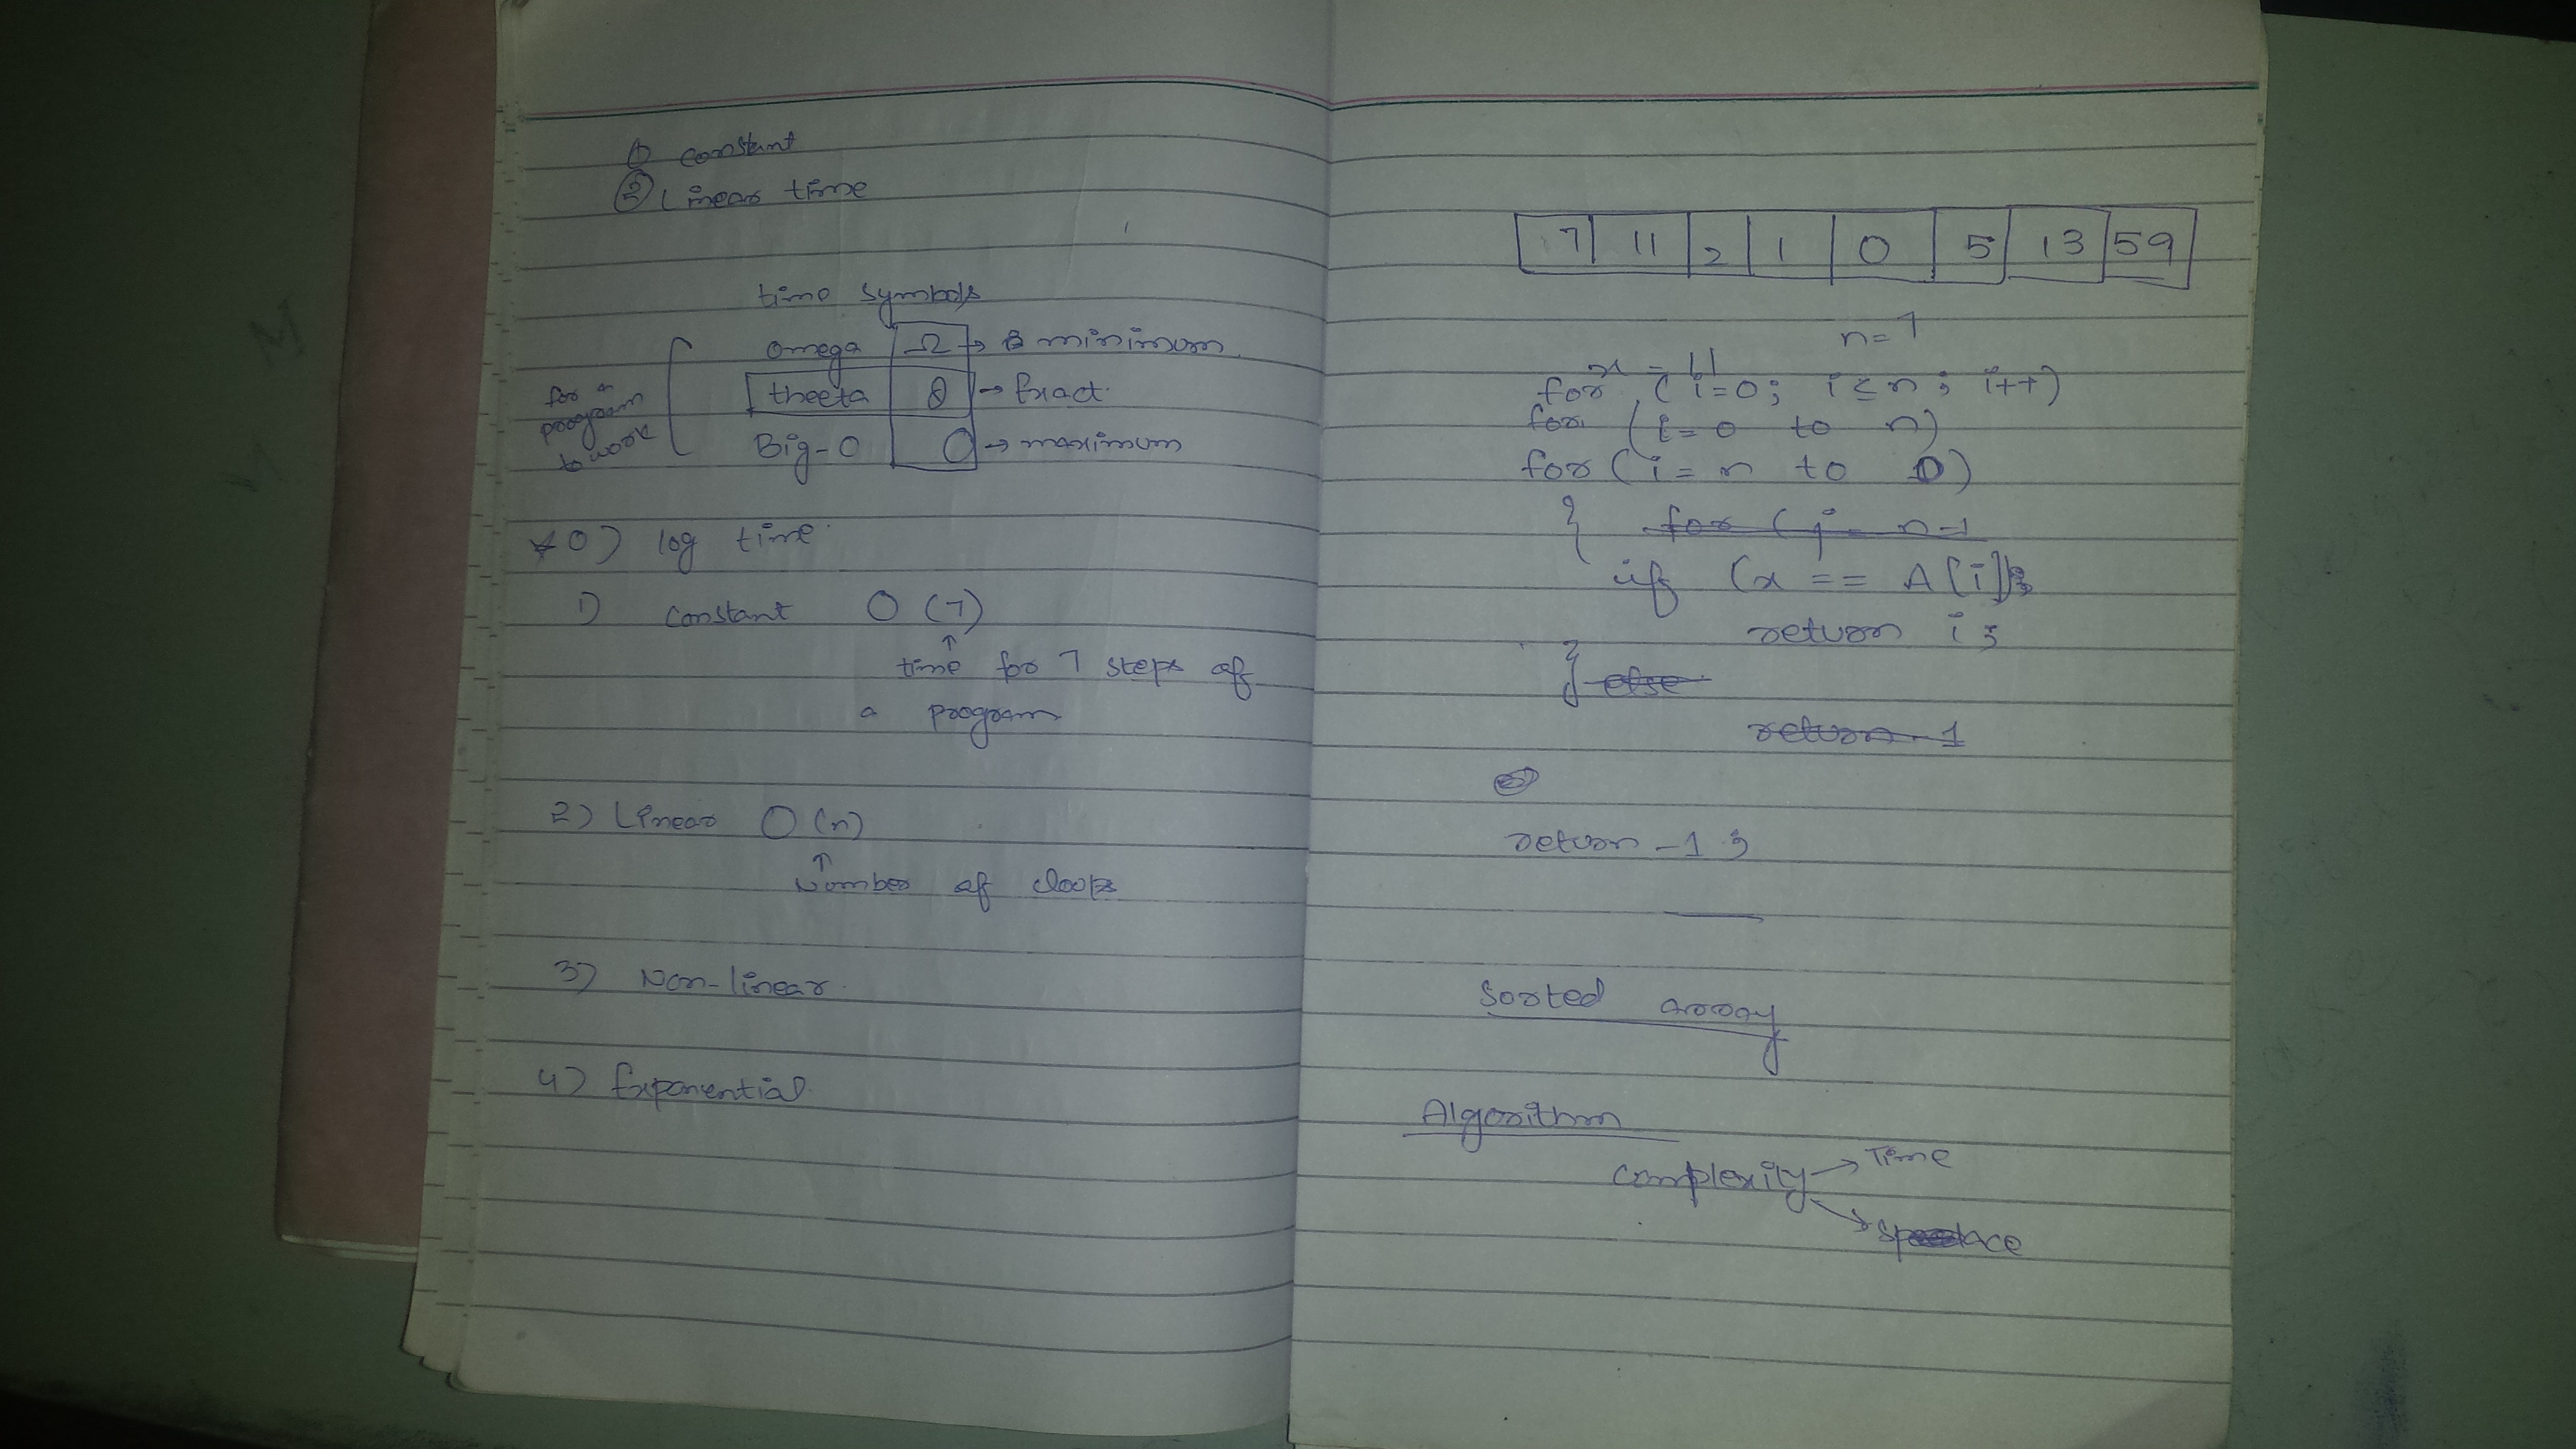 ① constant
② Linear time
time symbols
omega Ω → minimum
theeta θ → Exact
Big-O O → maximum
for a
program
to work
* 0) log time
1) constant O (7)
↑
time for 7 steps of
a program
2) Linear O (n)
↑
Number of loops
3) Non-linear
4) Exponential
7 11 2 1 0 5 13 59
n=7
x = 11
for ( i=0; i≤n; i++)
for (i= 0 to n)
for ( i = n to 0)
{ for ( j = n-1
if (x == A[i])
return i ;
} else
return -1
return -1 ;
Sorted array
Algorithm
complexity → Time
→ space